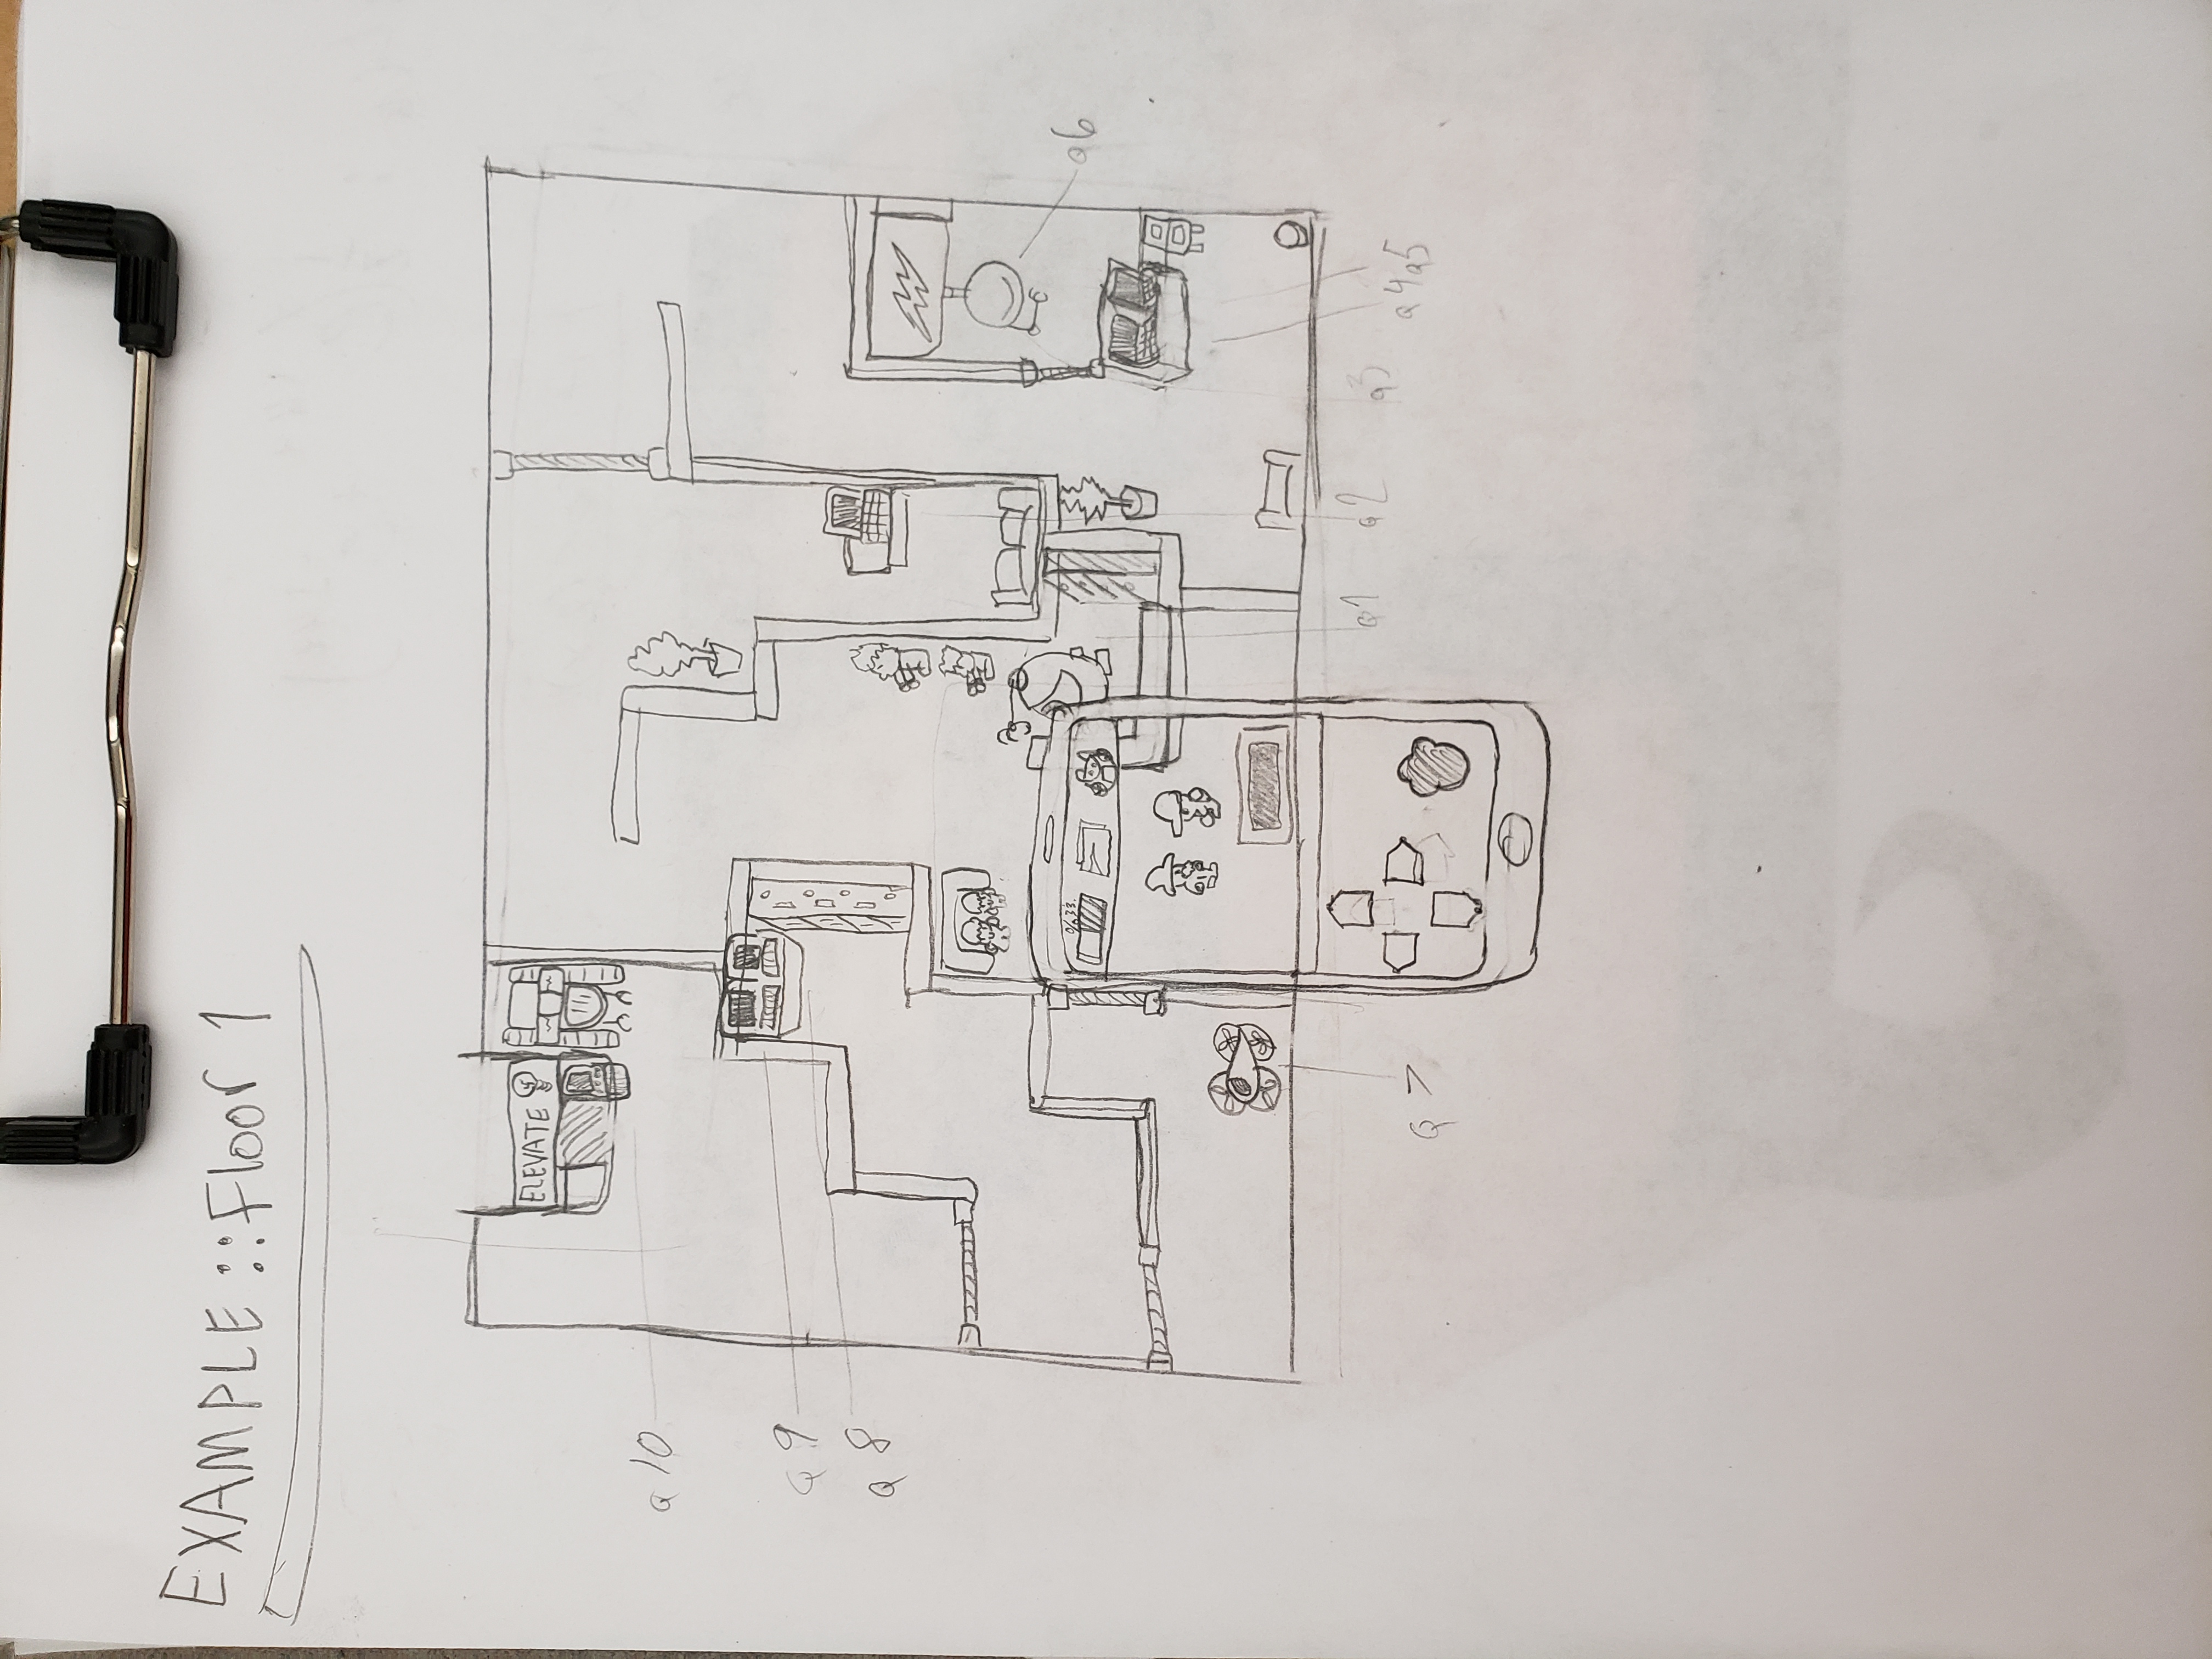 EXAMPLE::Floor 1
ELEVATE
Q 10
Q 9
Q 8
%33.
Q6
Q1 Q2 Q3
Q4 Q5
Q 7